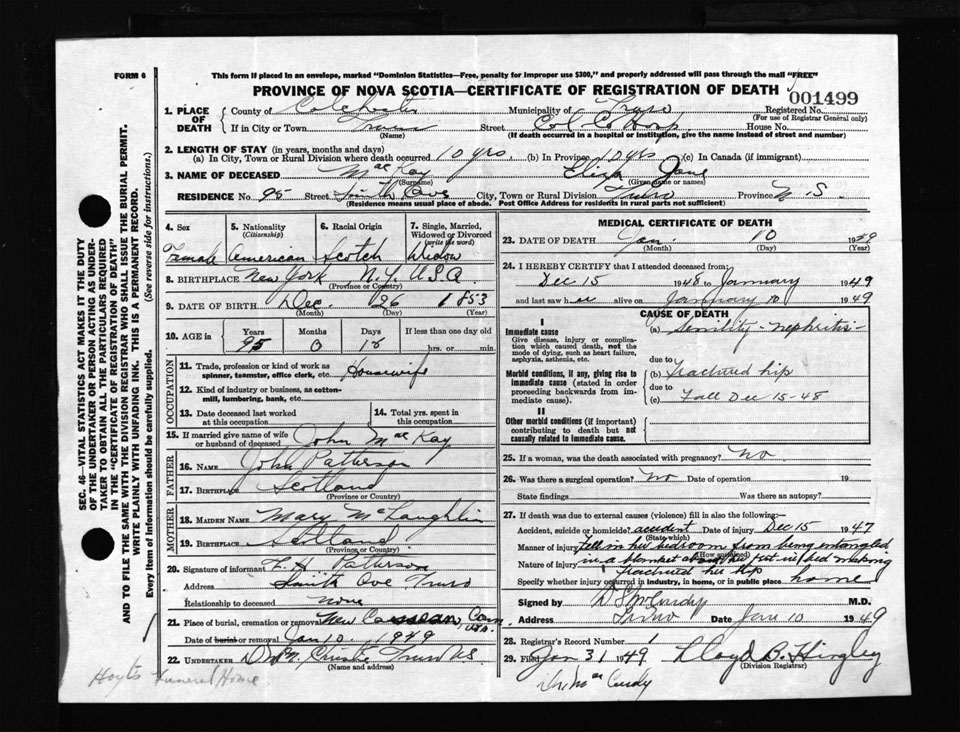 FORM 6
This form if placed in an envelope, marked "Dominion Statistics—Free, penalty for improper use $300," and properly addressed will pass through the mail "FREE"
PROVINCE OF NOVA SCOTIA—CERTIFICATE OF REGISTRATION OF DEATH
001499
1. PLACE OF DEATH
County of Colchester Municipality of Truro Registered No.
(For use of Registrar General only)
If in City or Town Truro Street Col. Co Hosp. House No.
(Name) (If death occurred in a hospital or institution, give the name instead of street and number)
2. LENGTH OF STAY (in years, months and days)
(a) In City, Town or Rural Division where death occurred 10 yrs. (b) In Province 10 yrs (c) In Canada (if immigrant)
3. NAME OF DECEASED MacKay Eliza Jane
(Surname) (Given name or names)
RESIDENCE No. 95 Street Smith Ave City, Town or Rural Division Truro Province N.S.
(Residence means usual place of abode. Post Office Address for residents in rural parts is not sufficient)
4. Sex
5. Nationality (Citizenship)
6. Racial Origin
7. Single, Married, Widowed or Divorced (write the word)
Female American Scotch Widow
8. BIRTHPLACE New York N.Y. U.S.A
(Province or Country)
9. DATE OF BIRTH Dec. 26 1853
(Month) (Day) (Year)
10. AGE in Years Months Days If less than one day old
95 0 15 hrs. or min.
OCCUPATION
11. Trade, profession or kind of work as spinner, teamster, office clerk, etc. Housewife
12. Kind of industry or business, as cotton-mill, lumbering, bank, etc.
13. Date deceased last worked at this occupation
14. Total yrs. spent in this occupation
15. If married give name of wife or husband of deceased John MacKay
FATHER
16. NAME John Patterson
17. BIRTHPLACE Scotland
(Province or Country)
MOTHER
18. MAIDEN NAME Mary McLaughlin
19. BIRTHPLACE Scotland
(Province or Country)
20. Signature of informant F. H. Patterson
Address Smith Ave Truro
Relationship to deceased none
21. Place of burial, cremation or removal New Canaan, Conn USA.
Date of burial or removal Jan 10. 1949
22. UNDERTAKER Christie Truro NS
(Name and address)
Hoyts Funeral Home
MEDICAL CERTIFICATE OF DEATH
23. DATE OF DEATH Jan. 10 1949
(Month) (Day) (Year)
24. I HEREBY CERTIFY that I attended deceased from:
Dec 15 1948 to January 1949
and last saw her alive on January 10 1949
CAUSE OF DEATH
I
Immediate cause
Give disease, injury or complication which caused death, not the mode of dying, such as heart failure, asphyxia, asthenia, etc.
(a) Senility - nephritis -
due to
Morbid conditions, if any, giving rise to immediate cause (stated in order proceeding backwards from immediate cause).
(b) Fractured hip
due to
(c) Fall Dec 15-48
II
Other morbid conditions (if important) contributing to death but not causally related to immediate cause.
25. If a woman, was the death associated with pregnancy? No
26. Was there a surgical operation? No Date of operation 19
State findings Was there an autopsy?
27. If death was due to external causes (violence) fill in also the following:-
Accident, suicide or homicide? accident Date of injury Dec 15 1947
(State which)
Manner of injury Fell in her bedroom from being entangled
(How sustained)
Nature of injury in a blanket
Fractured her hip
Specify whether injury occurred in industry, in home, or in public place home
Signed by D S McCurdy M.D.
Address Truro Date Jan 10 1949
28. Registrar's Record Number 1
29. Filed Jan 31 1949 Lloyd B. Hingley
(Division Registrar)
Dr. MacCurdy
SEC. 46—VITAL STATISTICS ACT MAKES IT THE DUTY OF THE UNDERTAKER OR PERSON ACTING AS UNDERTAKER TO OBTAIN ALL THE PARTICULARS REQUIRED IN THE "CERTIFICATE OF REGISTRATION OF DEATH"
AND TO FILE THE SAME WITH THE DIVISION REGISTRAR WHO SHALL ISSUE THE BURIAL PERMIT.
WRITE PLAINLY WITH UNFADING INK. THIS IS A PERMANENT RECORD.
Every item of information should be carefully supplied. (See reverse side for instructions.)